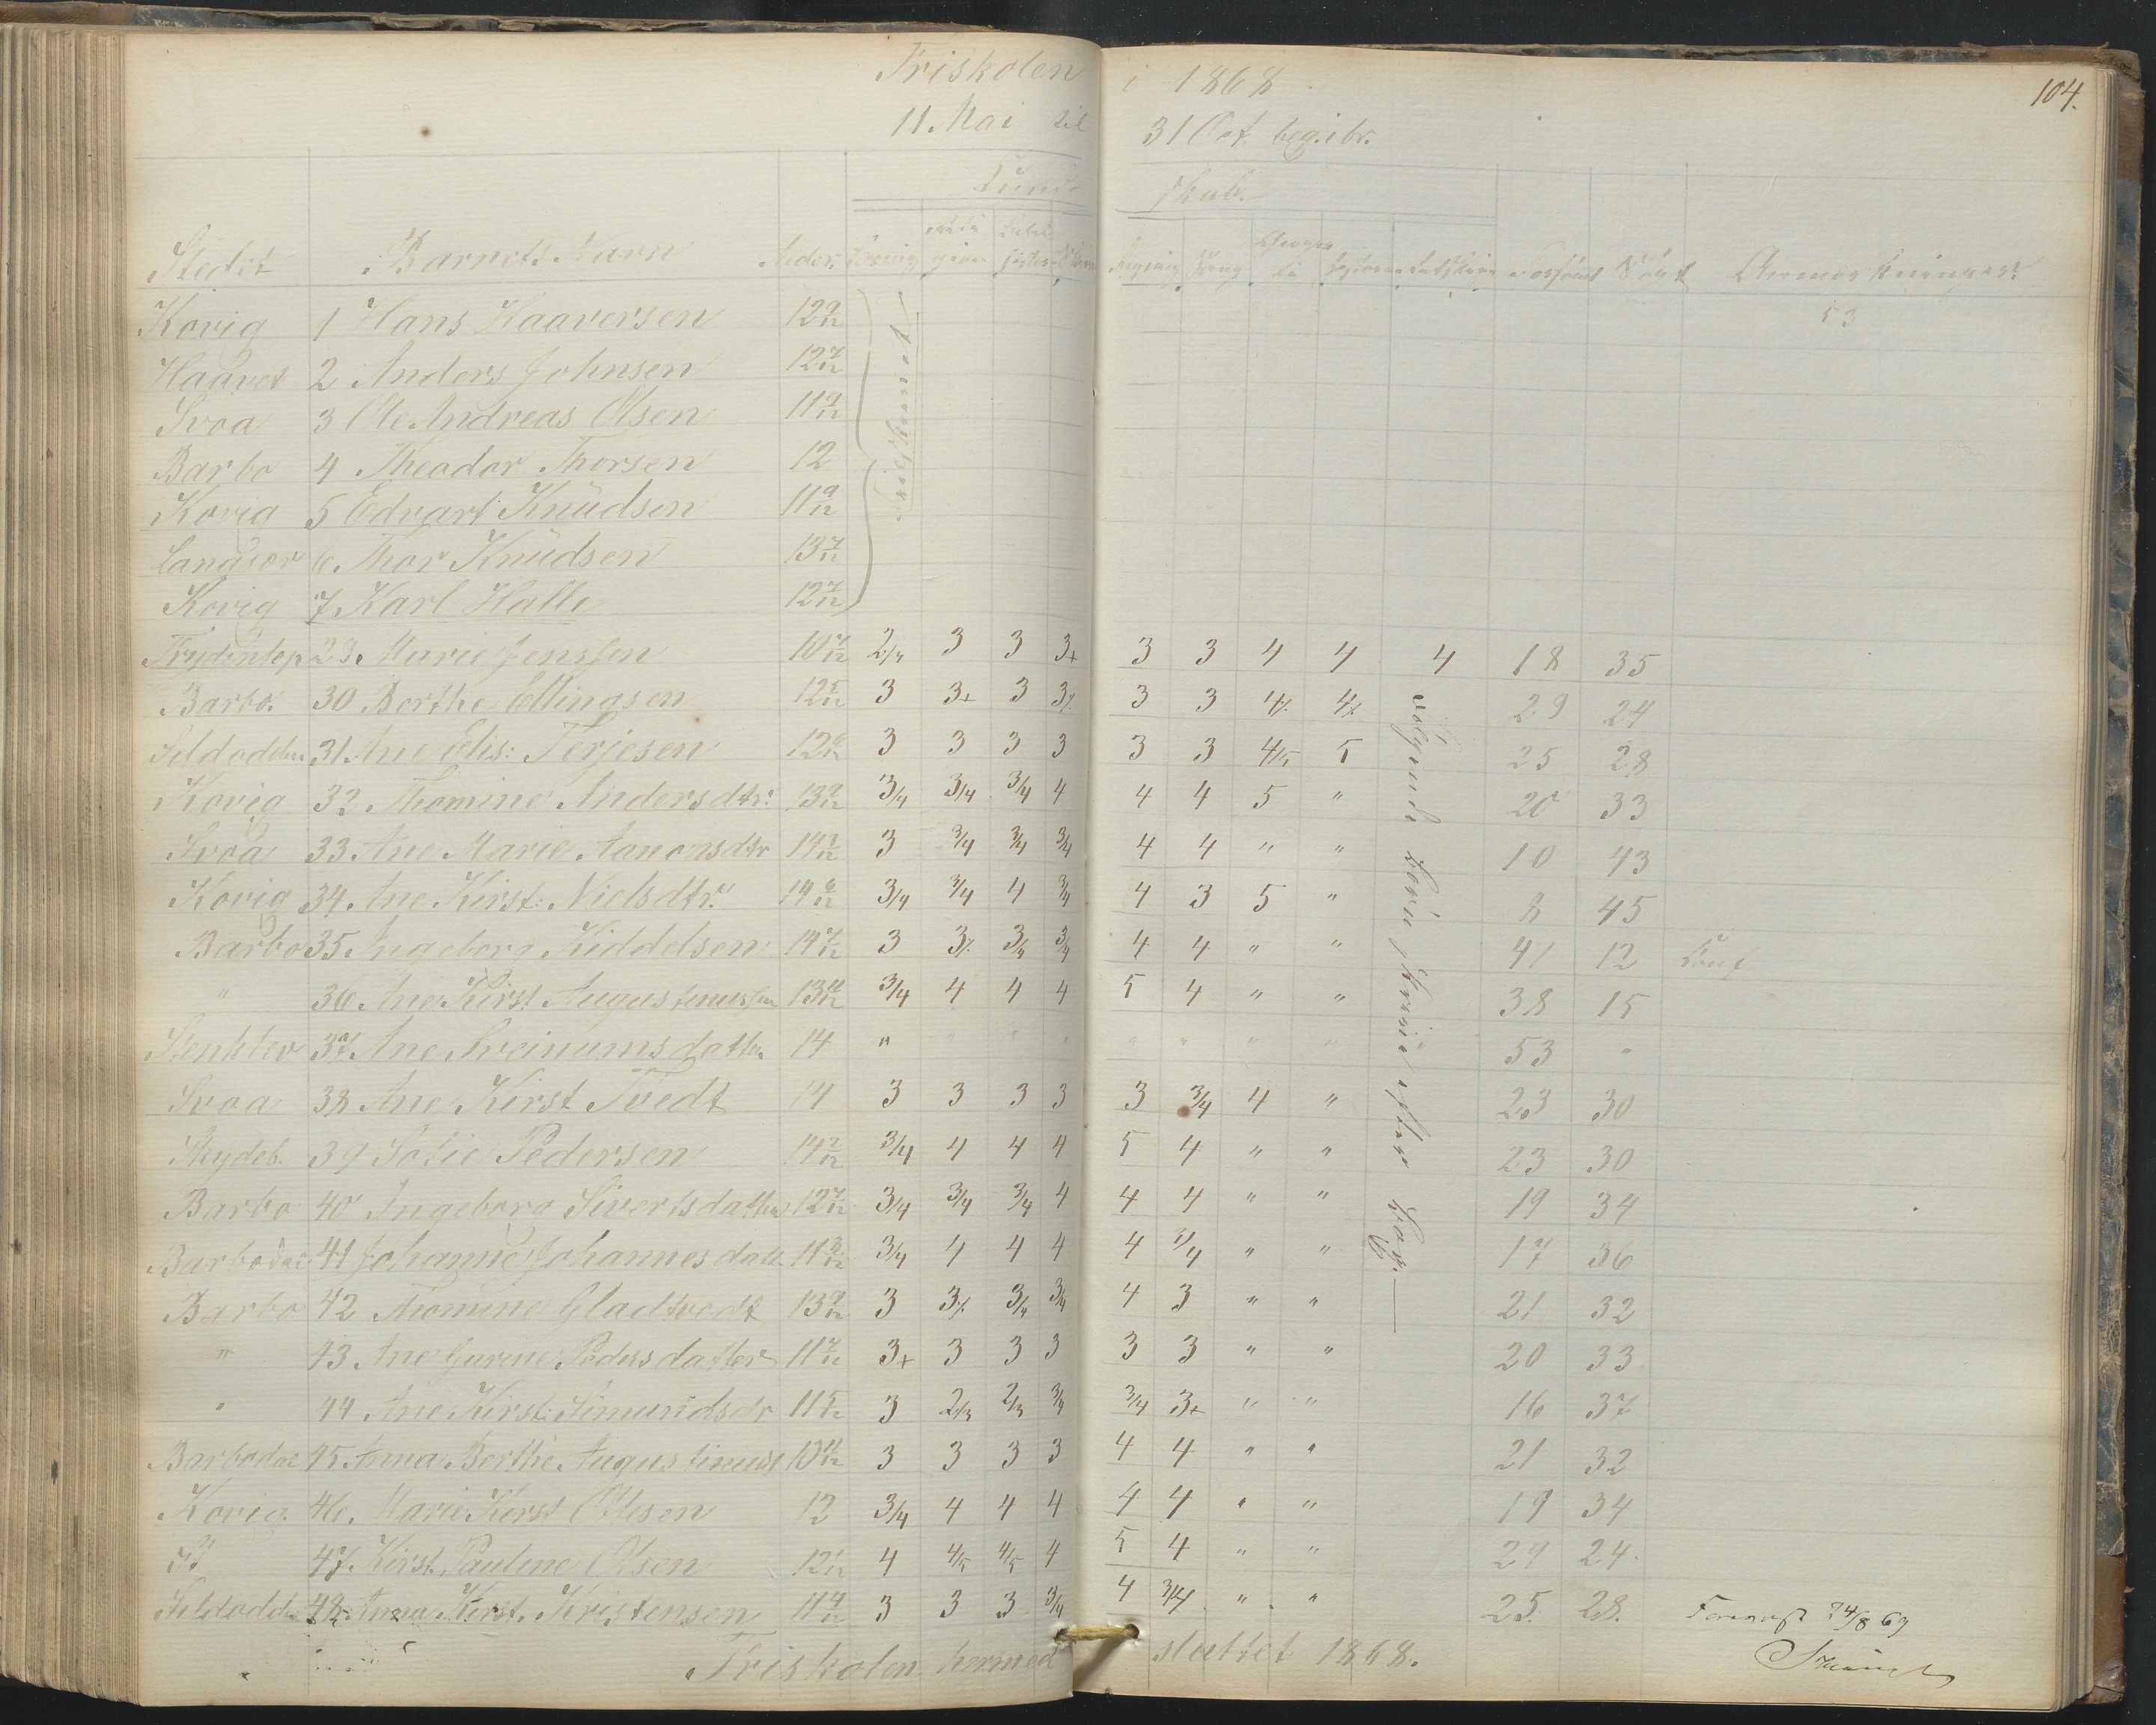 Friskolen i 1868
104.
11. Mai til 31 Oct. beg. ibr.
Kund- skab.
Stedet Barnets Navn Alder. Læsning Religion Bibelhistor. Skrivn. Regning Sang Geografi Historie Retskrivn. Forsømt Mødt Anmærkninger.
Kovig 1 Hans Haaversen 12 9/12 53
Haavet 2 Anders Johnsen 12 7/12
Svoa 3 Ole Andreas Olsen 11 9/12
Barbo 4 Theodor Thorsen 12
Kovig 5 Edvart Knudsen 11 9/12
Langsøv 6 Thor Knudsen 13 7/12
Kovig 7 Karl Halle 12 7/12
29. Marie Jenssen 10 7/12 2/3 3 3 3+ 3 3 4 4 4 18 35
Barbo. 30 Berthe Ellingsen 12 5/12 3 3+ 3 3% 3 3 4% 4% 29 24
Sildodden 31 Ane Elis: Terjesen 12 3 3 3 3 3 3 4/5 5 25 28
Kovig 32 Thomine Andersdtr: 13 9/12 3/4 3/4 3/4 4 4 4 5 " 20 33
Svoa 33 Ane Marie Aanonsdtr 14 3 3/4 3/4 3/4 4 4 " " 10 43
Kovig 34 Ane Kirst: Nielsdtr. 14 3/4 3/4 4 3/4 4 3 5 " 8 45
Barbo 35. Ingeborg Kiddelsen 14 7/12 3 3% 3/4 3/4 4 4 " " 41 12 Conf
" 36 Ane Kirst. Augustinussen 13 3/4 4 4 4 5 4 " " 38 15
Stenklev 37 Ane Sveinumsdatter 14 " " " " " " " " 53 "
Svoa 38 Ane Kirst Tvedt 14 3 3 3 3 3 3/4 4 " 23 30
Skydeb. 39 Sofie Pedersen 14 2/12 3/4 4 4 4 5 4 " " 23 30
Barbo 40 Ingeborg Sivertsdatter 12 7/12 3/4 3/4 3/4 4 4 4 " " 19 34
41 Johanne Johannesdatt. 11 3/4 4 4 4 4 3/4 " " 17 36
Barbo 42 Thomine Gladtvedt 13 9/12 3 3% 3/4 3/4 4 3 " " 21 32
" 43 Ane Gurine Pedersdatter 11 7/12 3+ 3 3 3 3 3 " " 20 33
" 44 Ane Kirst: Simundsdr 11 5/12 3 2/3 2/3 3/4 3/4 3+ " " 16 37
45 Anna Berthe Augustinuss 10 11/12 3 3 3 3 4 4 " " 21 32
Kovig. 46. Marie Kirst Olsen 12 3/4 4 4 4 4 4 " " 19 34
47. Kirst. Pauline Olsen 12 1/12 4 4/5 4/5 4 5 4 " " 29 24
Sildodd 48 Anna Kirst. Kristensen 11 4/12 3 3 3 3/4 4 3/4 " " 25. 28.
24/8 69
Friskolen hermed sluttet 1868.